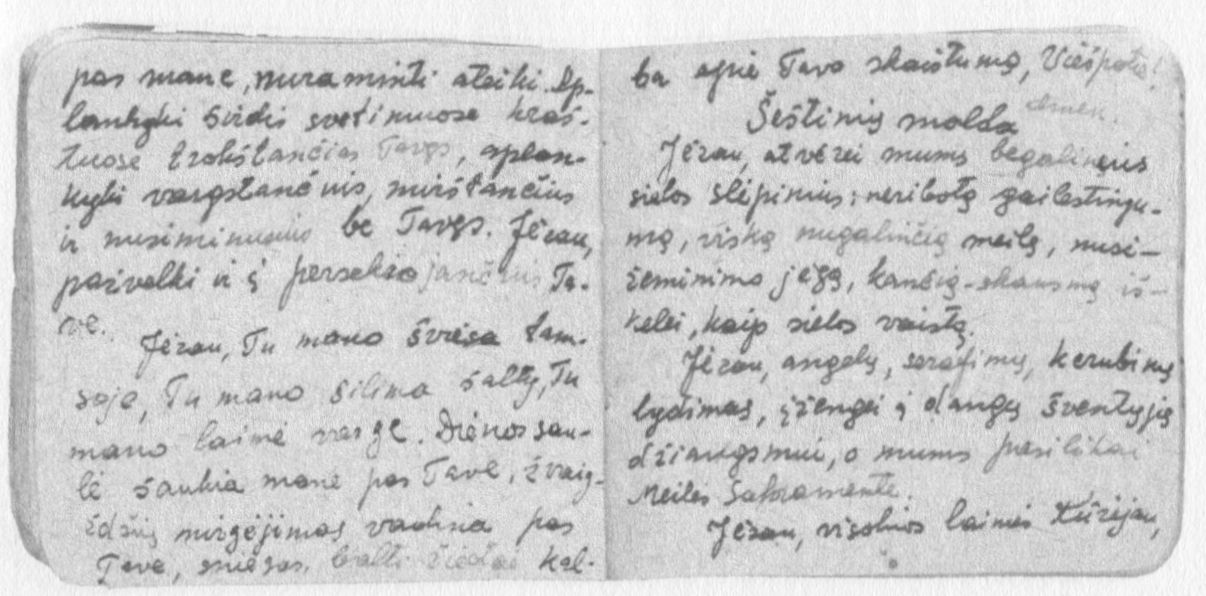 pas mane, nuraminti ateiki. Ap-
lankyki širdis svetimuose kraš-
tuose trokštančias Tavęs, aplan-
kyki vargstančius, mirštančius
ir nusiminusius be Tavęs. Jėzau,
pažvelki ir į persekiojančius Ta-
ve.
Jėzau, Tu mano šviesa tam-
soje, Tu mano šilima šaltį, Tu
mano laimė varge. Dienos sau-
lė šaukia mane pas Tave, žvaig-
ždžių mirgėjimas vadina pas
Tave, sniegas, balti žiedai kal-
ba apie Tavo skaistumą, Viešpatie!
Amen.
Šeštinių malda
Jėzau, atvėrei mums begalinius
sielos slėpinius: neribotą gailestingu-
mą, viską nugalinčią meilę, nusi-
žeminimo jėgą, kančią-skausmą iš-
kėlei, kaip sielos vaistą.
Jėzau, angelų, serafimų, kerubinų
lydimas, įžengei į dangų šventųjų
džiaugsmui, o mums pasilikai
Meilės Sakramente.
Jėzau, visokios laimės Kūrėjau,